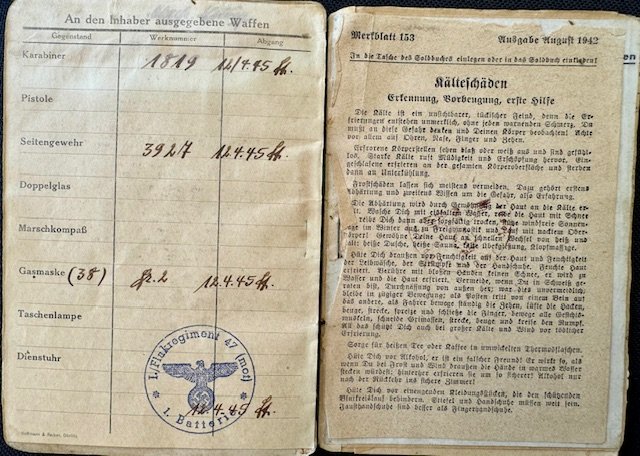 An den Inhaber ausgegebene Waffen
Gegenstand Werknummer Abgang
Karabiner 1819 12/4.45
Pistole
Seitengewehr 3927 12.4.45
Doppelglas
Marschkompaß
Gasmaske (38) Gr. 2 12.4.45
Taschenlampe
Dienstuhr
47 (mot)
1. Batterie
12.4.45
Merkblatt 153 Ausgabe August 1942
In die Tasche des Soldbuches einlegen oder in das Soldbuch einkleben!
Kälteschäden
Erkennung, Vorbeugung, erste Hilfe
Die Kälte ist ein unsichtbarer, tückischer Feind, denn die Er-
frierungen entstehen unmerklich, ohne jeden warnenden Schmerz. Du
mußt an diese Gefahr denken und Deinen Körper beobachten! Achte
vor allem auf Ohren, Nase, Finger und Zehen.
Erfrorene Körperstellen sehen blaß oder weiß aus und sind gefühl-
los. Starke Kälte ruft Müdigkeit und Erschöpfung hervor. Ein-
geschlafene erfrieren an der gesamten Körperoberfläche und sterben
dann an Unterkühlung.
Frostschäden lassen sich meistens vermeiden. Dazu gehört erstens
Abhärtung und zweitens Wissen um die Gefahr, also Erfahrung.
Die Abhärtung wird durch Gewöhnung der Haut an die Kälte er-
zielt. Wasche Dich mit eiskaltem Wasser, reibe die Haut mit Schnee
reibe Dich dann aber sorgfältig trocken, nutze windfreie Sonnen-
tage im Winter aus zu Freigymnastik und Lauf mit nacktem Ober-
körper! Gewöhne Deine Haut an schnellen Wechsel von heiß und
kalt: heiße Dusche, heiße Sauna, kalte Abkühlung, Klopfmassage.
Hüte Dich draußen vor Feuchtigkeit auf der Haut und Feuchtigkeit
der Leibwäsche, der Strümpfe und der Handschuhe. Feuchte Haut
erfriert. Berühre mit bloßen Händen keinen Schnee, er wird zu
Wasser und die Haut erfriert. Vermeide, wenn Du in Schweiß ge-
raten bist, Durchnässung von außen her; war dies unvermeidlich:
bleibe in zügiger Bewegung: als Posten tritt von einem Bein auf
das andere, als Fahrer bewege ständig die Zehen, lüfte die Hacken,
beuge, strecke, spreize und schließe die Finger, bewege alle Gesichts-
muskeln, schneide Grimassen, strecke, beuge und kreise den Rumpf.
All das schützt Dich auch bei großer Kälte und Wind vor tödlicher
Erfrierung.
Sorge für heißen Tee oder Kaffee in umwickelten Thermosflaschen.
Hüte Dich vor Alkohol, er ist ein falscher Freund! Er wirkt so, als
wenn Du bei Frost und Wind draußen die Hände in warmes Wasser
stecken würdest; hinterher erfrieren sie um so sicherer! Alkohol nur
nach der Rückkehr ins sichere Zimmer!
Hüte Dich vor einengenden Kleidungsstücken, die den schützenden
Blutkreislauf behindern. Stiefel und Handschuhe müssen weit sein.
Fausthandschuhe sind besser als Fingerhandschuhe.